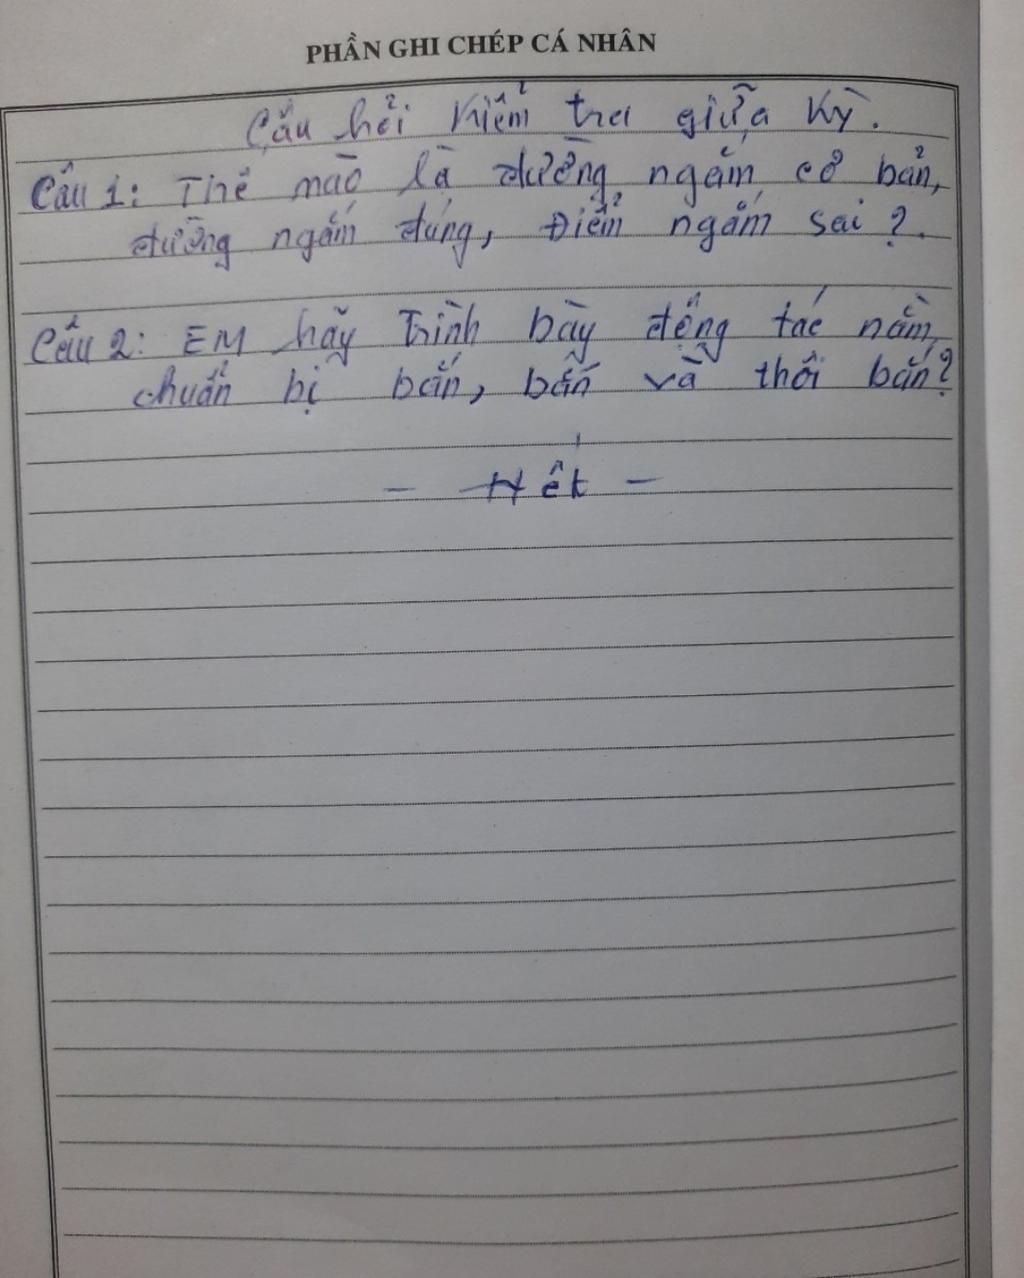 PHẦN GHI CHÉP CÁ NHÂN
Câu hỏi kiểm tra giữa kỳ.
Câu 1: Thế mào là đường ngắm cơ bản,
đường ngắm đúng, Điểm ngắm sai?.
Câu 2: EM hãy Trình bày động tác nằm
chuẩn bị bắn, bắn và thôi bắn?
- Hết -